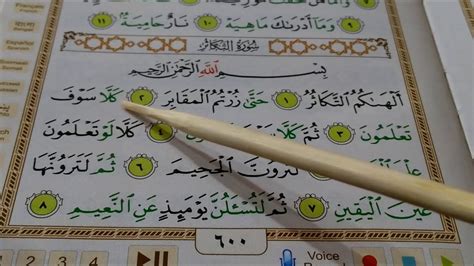 وَمَآ أَدْرَىٰكَ مَا هِيَهْ ١٠ نَارٌ حَامِيَةٌۢ ١١
سُورَةُ التَّكَاثُرِ
بِسْمِ ٱللَّهِ ٱلرَّحْمَٰنِ ٱلرَّحِيمِ
أَلْهَىٰكُمُ ٱلتَّكَاثُرُ ١ حَتَّىٰ زُرْتُمُ ٱلْمَقَابِرَ ٢ كَلَّا سَوْفَ
تَعْلَمُونَ ٣ ثُمَّ كَلَّا ٤ كَلَّا لَوْ تَعْلَمُونَ
عِلْمَ ٱلْيَقِينِ لَتَرَوُنَّ ٱلْجَحِيمَ ٦ ثُمَّ لَتَرَوُنَّهَا
عَيْنَ ٱلْيَقِينِ ٧ ثُمَّ لَتُسْـَٔلُنَّ يَوْمَئِذٍ عَنِ ٱلنَّعِيمِ ٨
٦٠٠
1 2 3 4 Voice